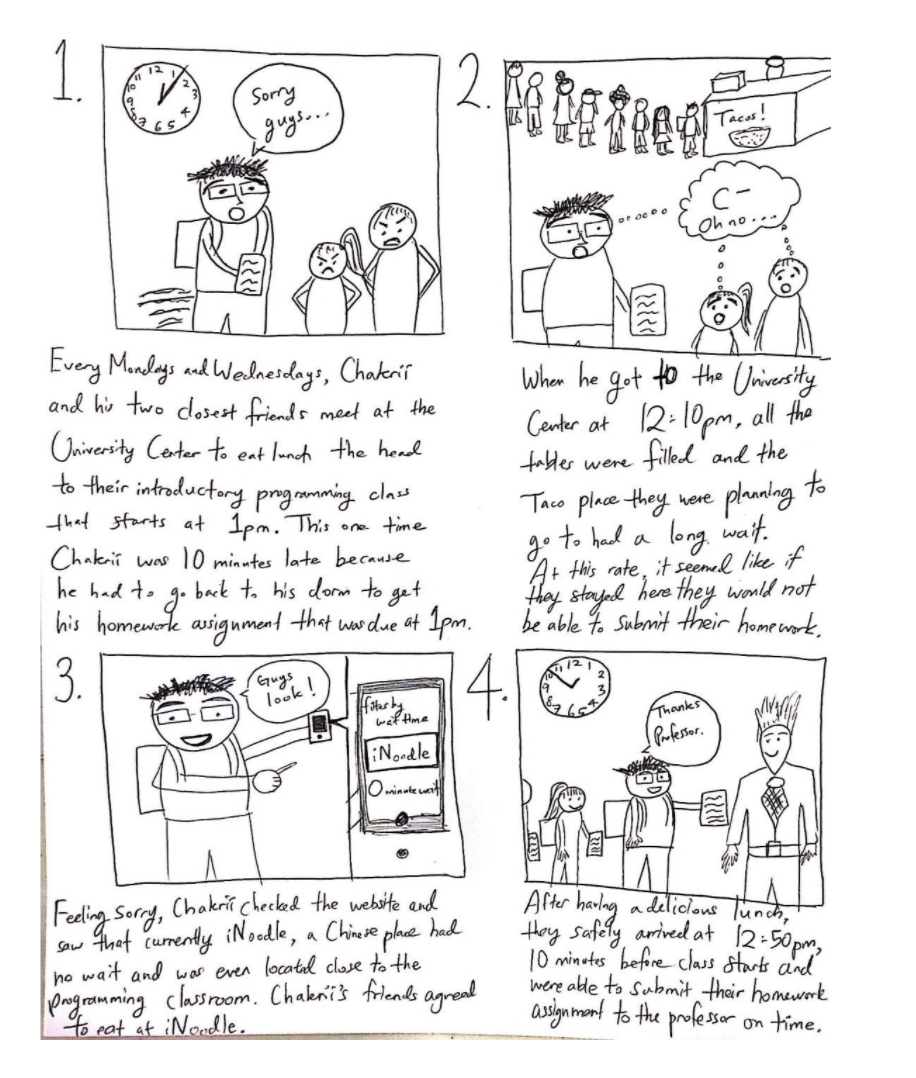 1.
12
1
2
3
4
5
6
7
8
9
10
11
Sorry
guys...
Every Mondays and Wednesdays, Chakrii
and his two closest friends meet at the
University Center to eat lunch the head
to their introductory programming class
that starts at 1pm. This one time
Chakrii was 10 minutes late because
he had to go back to his dorm to get
his homework assignment that was due at 1pm.
2.
Tacos!
C-
Oh no...
When he got to the University
Center at 12:10pm, all the
tables were filled and the
Taco place they were planning to
go to had a long wait.
At this rate, it seemed like if
they stayed here they would not
be able to submit their homework.
3.
Guys
look!
filter by
wait time
iNoodle
0 minute wait
Feeling sorry, Chakrii checked the website and
saw that currently iNoodle, a Chinese place had
no wait and was even located close to the
programming classroom. Chakrii's friends agreed
to eat at iNoodle.
4.
12
1
2
3
4
5
6
7
8
9
10
11
Thanks
Professor.
After having a delicious lunch,
they safely arrived at 12:50pm,
10 minutes before class starts and
were able to submit their homework
assignment to the professor on time.